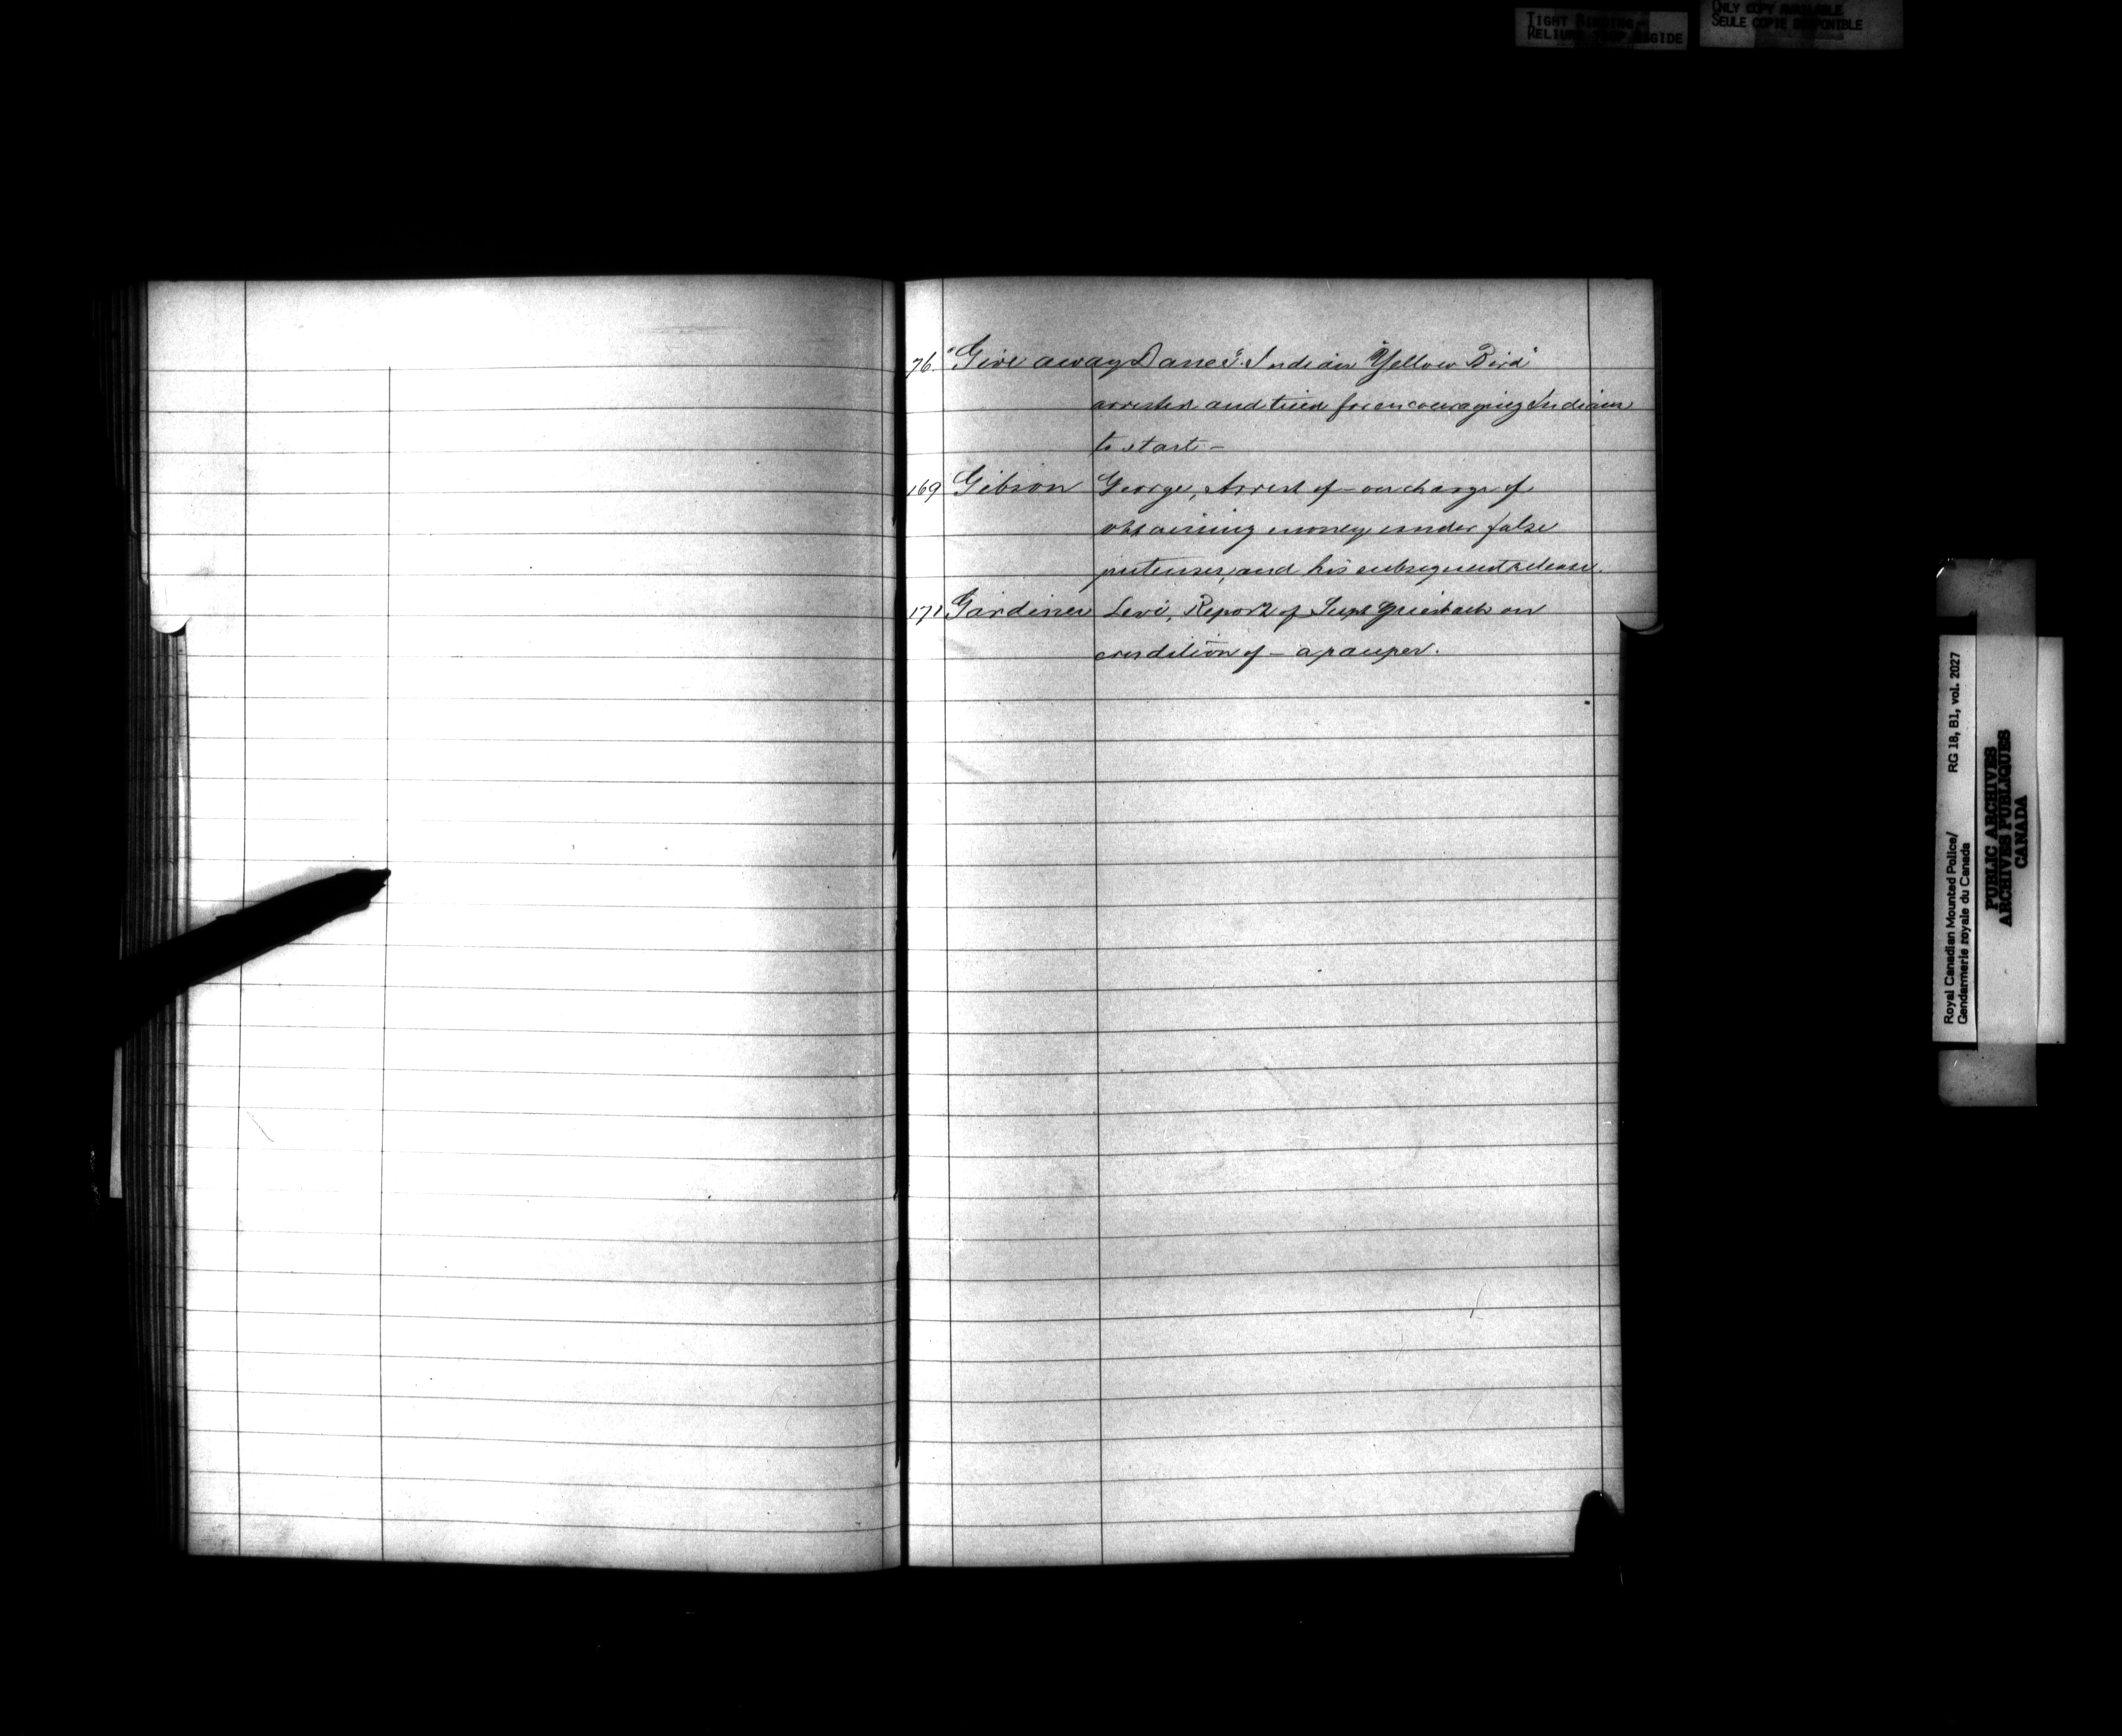 TIGHT BINDING-
RELIURE TROP RIGIDE
ONLY COPY AVAILABLE
SEULE COPIE DISPONIBLE
76. "Give away Dance". Indian "Yellow Bird"
arrested and tried for encouraging Indians
to start -
169 Gibson George, Arrest of - on charge of
obtaining money under false
pretenses, and his subsequent release.
171 Gardiner Levi, Report of Supt Griesbach on
condition of - a pauper.
Royal Canadian Mounted Police/ RG 18, B1, vol. 2027
Gendarmerie royale du Canada
PUBLIC ARCHIVES
ARCHIVES PUBLIQUES
CANADA